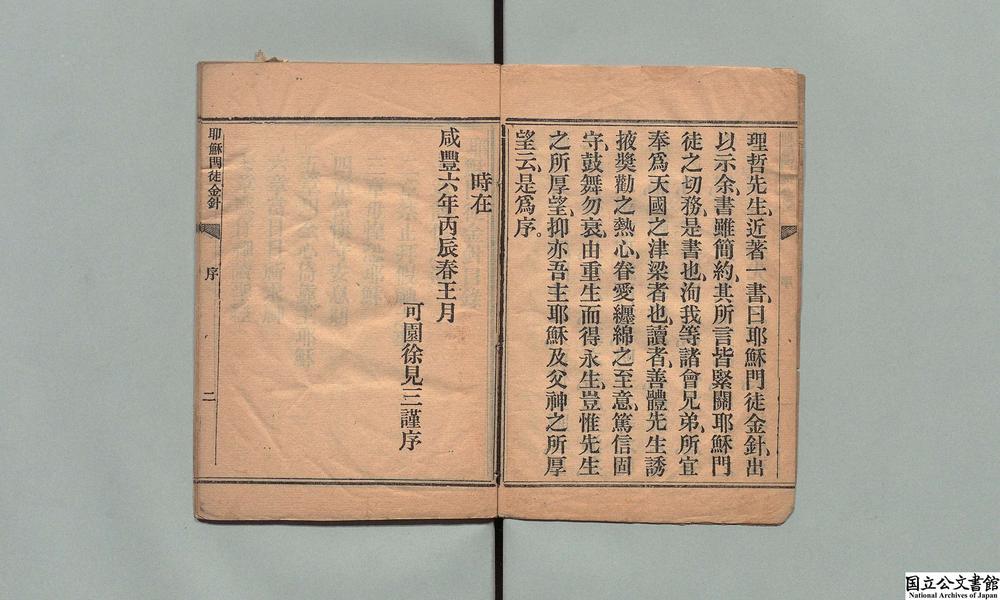 理哲先生、近著一書、曰耶穌門徒金針、出
以示余、書雖簡約、其所言皆緊關耶穌門
徒之切務、是書也、洵我等諸會兄弟、所宜
奉爲天國之津梁者也、讀者、善體先生誘
掖奬勸之熱心、眷愛纏綿之至意、篤信固
守、鼓舞勿衰、由重生而得永生、豈惟先生
之所厚望、抑亦吾主耶穌及父神之所厚
望云、是爲序。
時在
咸豐六年丙辰春王月
可園徐見三謹序
耶穌門徒金針
序
二
国立公文書館
National Archives of Japan